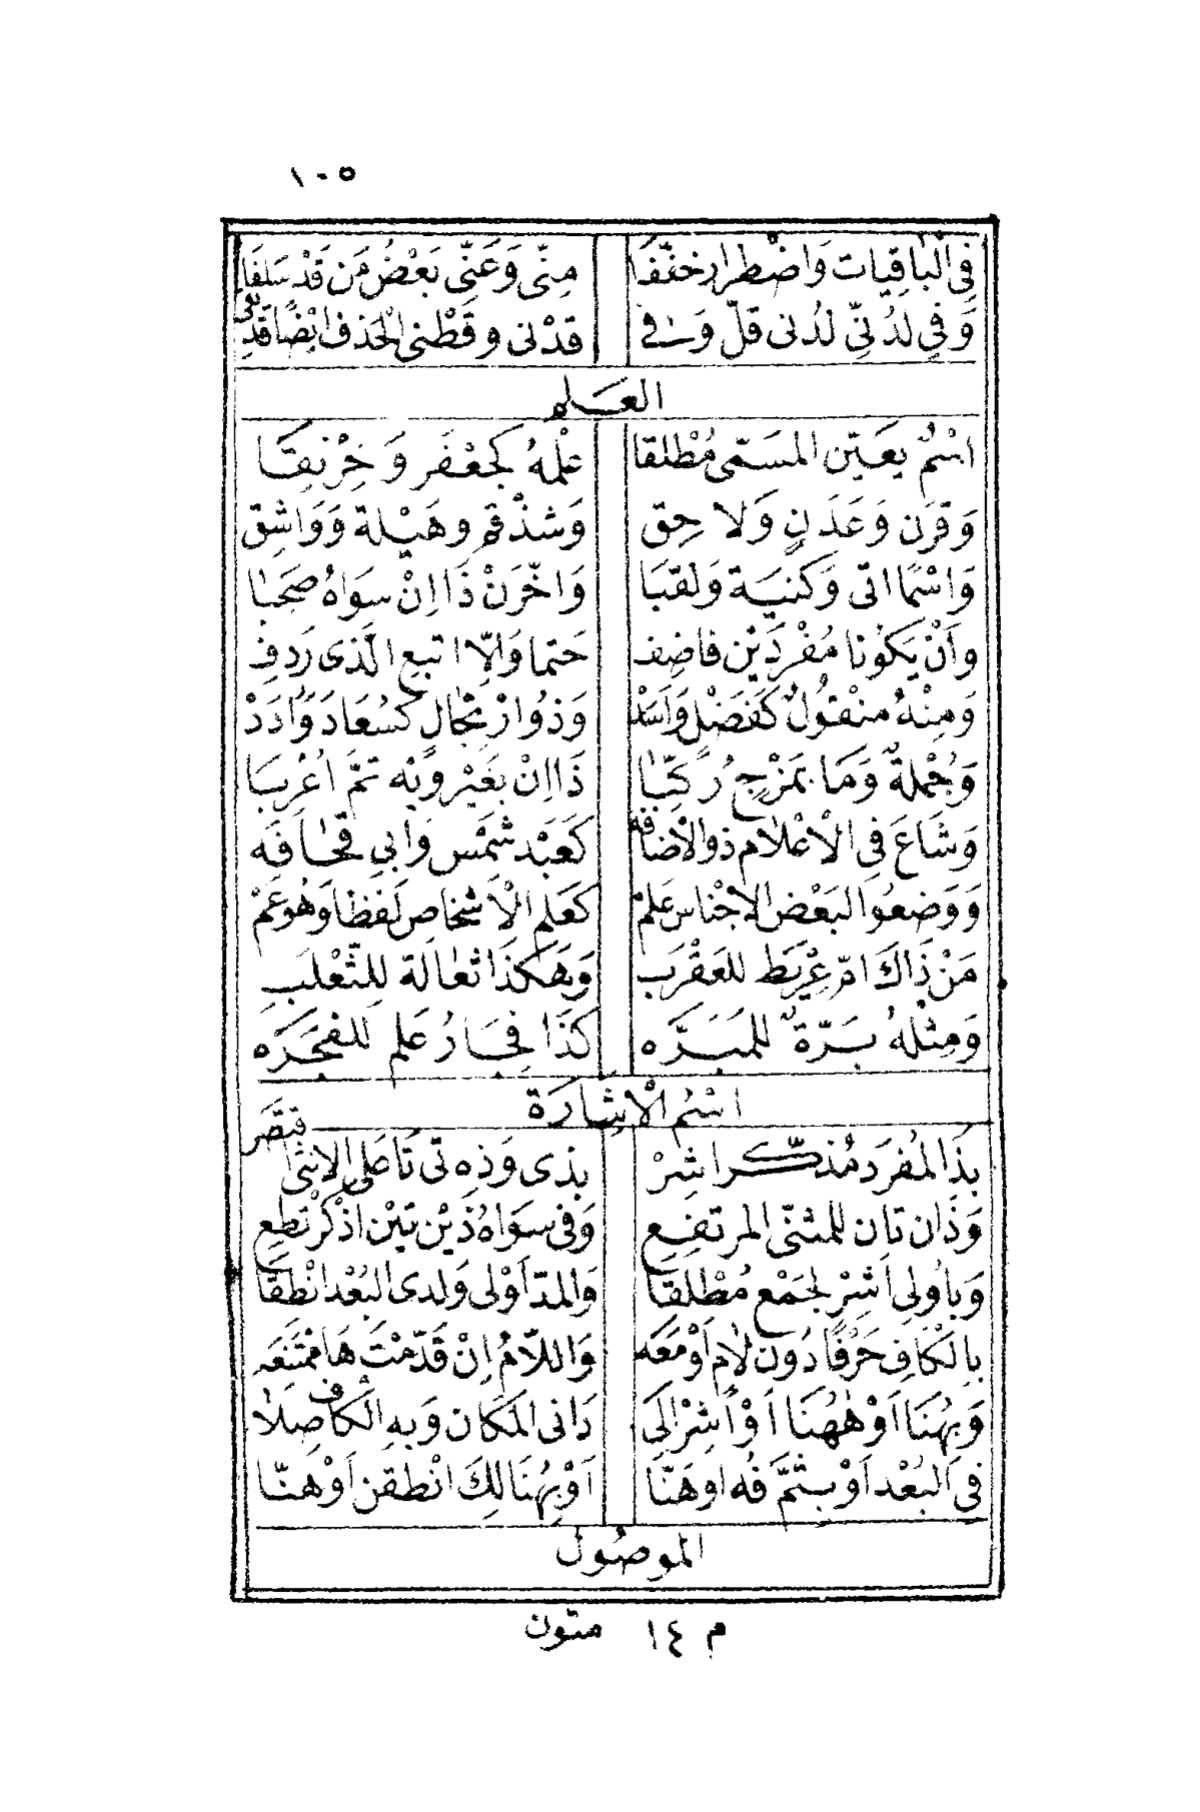 ١٠٥
فِي الْبَاقِيَات وَاضْطِرَارًا خَفَّفَا مِنِّي وَعَنِّي بَعْضُ مَن قَدْ سَلَفَا
وَفِي لَدُنِّي لَدُنِي قَلَّ وَفي قَدْنِي وقَطْنِي الْحَذف ايْضًا قَدْ يَفِي
العَلَم
اسْمٌ يعَيِّن المسَمّى مُطْلقا عَلَمُهُ كَجَعْفَر وَخِرْنِقَا
وَقرَن وَعَدَنٍ وَلاحِق وَشَذْقَم وهَيْلة وَوَاشِق
وَاسْمًا اتى وَكنيَة وَلَقبَا وَاخِّرَنْ ذَا اِنْ سِوَاهُ صَحِبَا
وَاِنْ يَكُونا مُفْرَدَيْن فاضِف حَتما وَالّا اتبع الّذى رَدِف
وَمِنْهُ منْقولٌ كَفَضْلٍ وَاَسَدْ وَذُو ارْتِجَالٍ كَسُعَادَ وَاُدَدْ
وَجُمْلةٌ وَمَا بمَزْجٍ رُكِّبَا ذَا اِنْ بغَيْرِ وَيْهِ تمَّ اُعْرِبَا
وَشَاعَ فِي الْاَعْلَام ذو الاْضَافَه كَعَبْد شَمْس وَابِي قحَافَه
وَوَضعُوا لبَعْض الاَجْنَاس عَلَمْ كَعَلَم الْاَشْخاص لَفظا وَهُوَ عَمْ
مَنْ ذَاكَ امّ عِرْيَطٍ للعَقْرَب وَهَكَذَا ثعَالَة لِلثَّعْلَب
وَمِثْلهُ بَرَّةٌ للمَبَرَّه كَذَا فجَارُ عَلم للفجَرَه
اسْمُ الْاِشَارَة
بِذَا لمُفرَد مُذكّر اشِرْ بذى وَذِه تى تَا عَلى الانثى اقتصِر
وَذَان تان للمثنّى المرتفِع وَفى سِوَاهُ ذَيْن تَيْن اذْكُرْ تطِع
وَبِاُولى اَشِرْ لجَمْع مُطْلقًا وَالمَدّ اَوْلى وَلدى البُعْد انْطِقَا
بالكَافِ حَرْفًا دُون لَام اَوْ مَعَه وَاللّامُ اِنْ قَدَّمْتَ هَا ممتَنِعَه
وَبهُنَا اَوْ هٰهُنَا اَشِرْ اِلَى دَانى المَكَان وَبهِ الْكَاف صِلَا
فى البُعْد اَوْ بثَمَّ فُه اوهَنَّا اَوْ بِهُنَالِكَ انْطِقن اَوْ هِنّا
الموصُول
م ١٤ متون